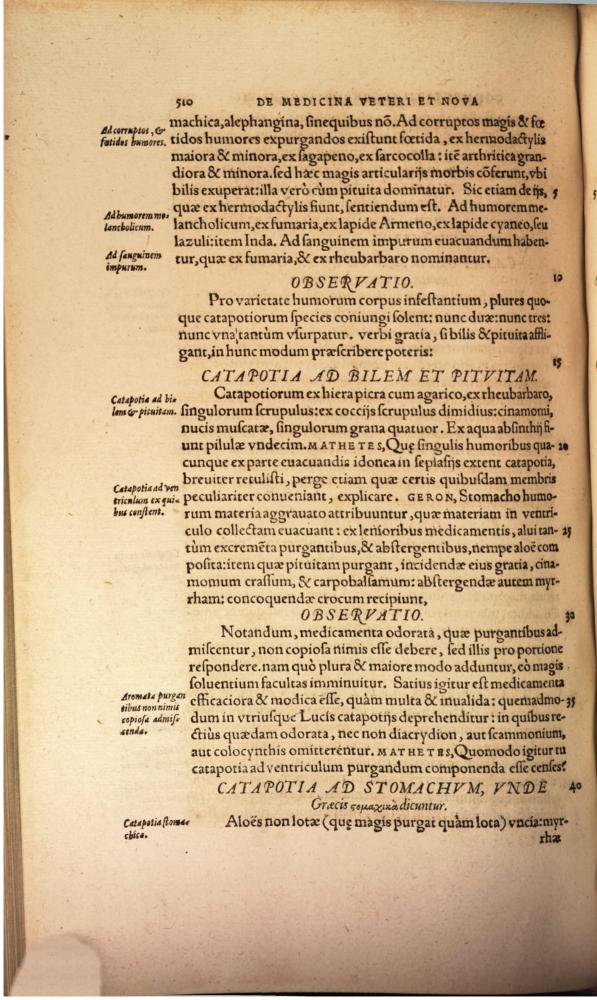 510 DE MEDICINA VETERI ET NOVA
machica,alephangina, sinequibus nõ. Ad corruptos magis & fœ
Ad corruptos, &
fœtidos humores.
tidos humores expurgandos existunt fœtida, ex hermodactylis
maiora & minora, ex sagapeno, ex sarcocolla: itẽ arthritica gran-
diora & minora. sed hæc magis articularijs morbis cõferunt, vbi
bilis exuperat: illa verò cùm pituita dominatur. Sic etiam de ijs, 5
quæ ex hermodactylis fiunt, sentiendum est. Ad humorem me-
Ad humorem me-
lancholicum.
lancholicum, ex fumaria, ex lapide Armeno, ex lapide cyaneo, seu
lazuli: item Inda. Ad sanguinem impurum euacuandum haben-
Ad sanguinem
impurum.
tur, quæ ex fumaria, & ex rheubarbaro nominantur.
OBSERVATIO. 10
Pro varietate humorum corpus infestantium, plures quo-
que catapotiorum species coniungi solent: nunc duæ: nunc tres:
nunc vna tantùm vsurpatur. verbi gratia, si bilis & pituita affli-
gant, in hunc modum præscribere poteris:
15
CATAPOTIA AD BILEM ET PITVITAM.
Catapotia ad bi-
lem & pituitam.
Catapotiorum ex hiera picra cum agarico, ex rheubarbaro,
singulorum scrupulus: ex coccijs scrupulus dimidius: cinamomi,
nucis muscatæ, singulorum grana quatuor. Ex aqua absinthij fi-
unt pilulæ vndecim. MATHETES, Quę singulis humoribus qua- 20
cunque ex parte euacuandis idonea in seplasijs extent catapotia,
breuiter retulisti, perge etiam quæ certis quibusdam membris
Catapotia ad ven
triculum ex qui-
bus constent.
peculiariter conueniant, explicare. GERON, Stomacho humo-
rum materia aggrauato attribuuntur, quæ materiam in ventri-
culo collectam euacuant: ex lenioribus medicamentis, alui tan- 25
tùm excremẽta purgantibus, & abstergentibus, nempe aloë com
posita: item quæ pituitam purgant, incidendæ eius gratia, cina-
momum crassum, & carpobalsamum: abstergendæ autem myr-
rham: concoquendæ crocum recipiunt,
OBSERVATIO. 30
Notandum, medicamenta odorata, quæ purgantibus ad-
miscentur, non copiosa nimis esse debere, sed illis pro portione
respondere. nam quò plura & maiore modo adduntur, eò magis
soluentium facultas imminuitur. Satius igitur est medicamenta
Aromata purgan
tibus non nimis
copiosa admisc
enda.
efficaciora & modica esse, quàm multa & inualida: quemadmo- 35
dum in vtriusque Lucis catapotijs deprehenditur: in quibus re-
ctiùs quædam odorata, nec non diacrydion, aut scammonium,
aut colocynthis omitterentur. MATHETES, Quomodo igitur tu
catapotia ad ventriculum purgandum componenda esse censes?
CATAPOTIA AD STOMACHVM, VNDE 40
Græcis ςομαχικὰ dicuntur.
Catapotia stoma-
chica.
Aloës non lotæ (quę magis purgat quàm lota) vncia: myr-
rhæ